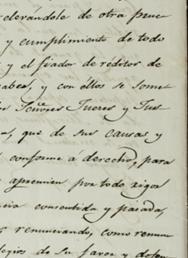 elerándole de otra prue
y cumplimiento de todo
y el fiador de redetor de
abea, y con éllos se some
Señores Jueces y Jus
a, que de sus causas y
conforme a derecho, para
apremien por todo rigor
iva consentida y pasada,
renunciando, como renun
legios de su favor y